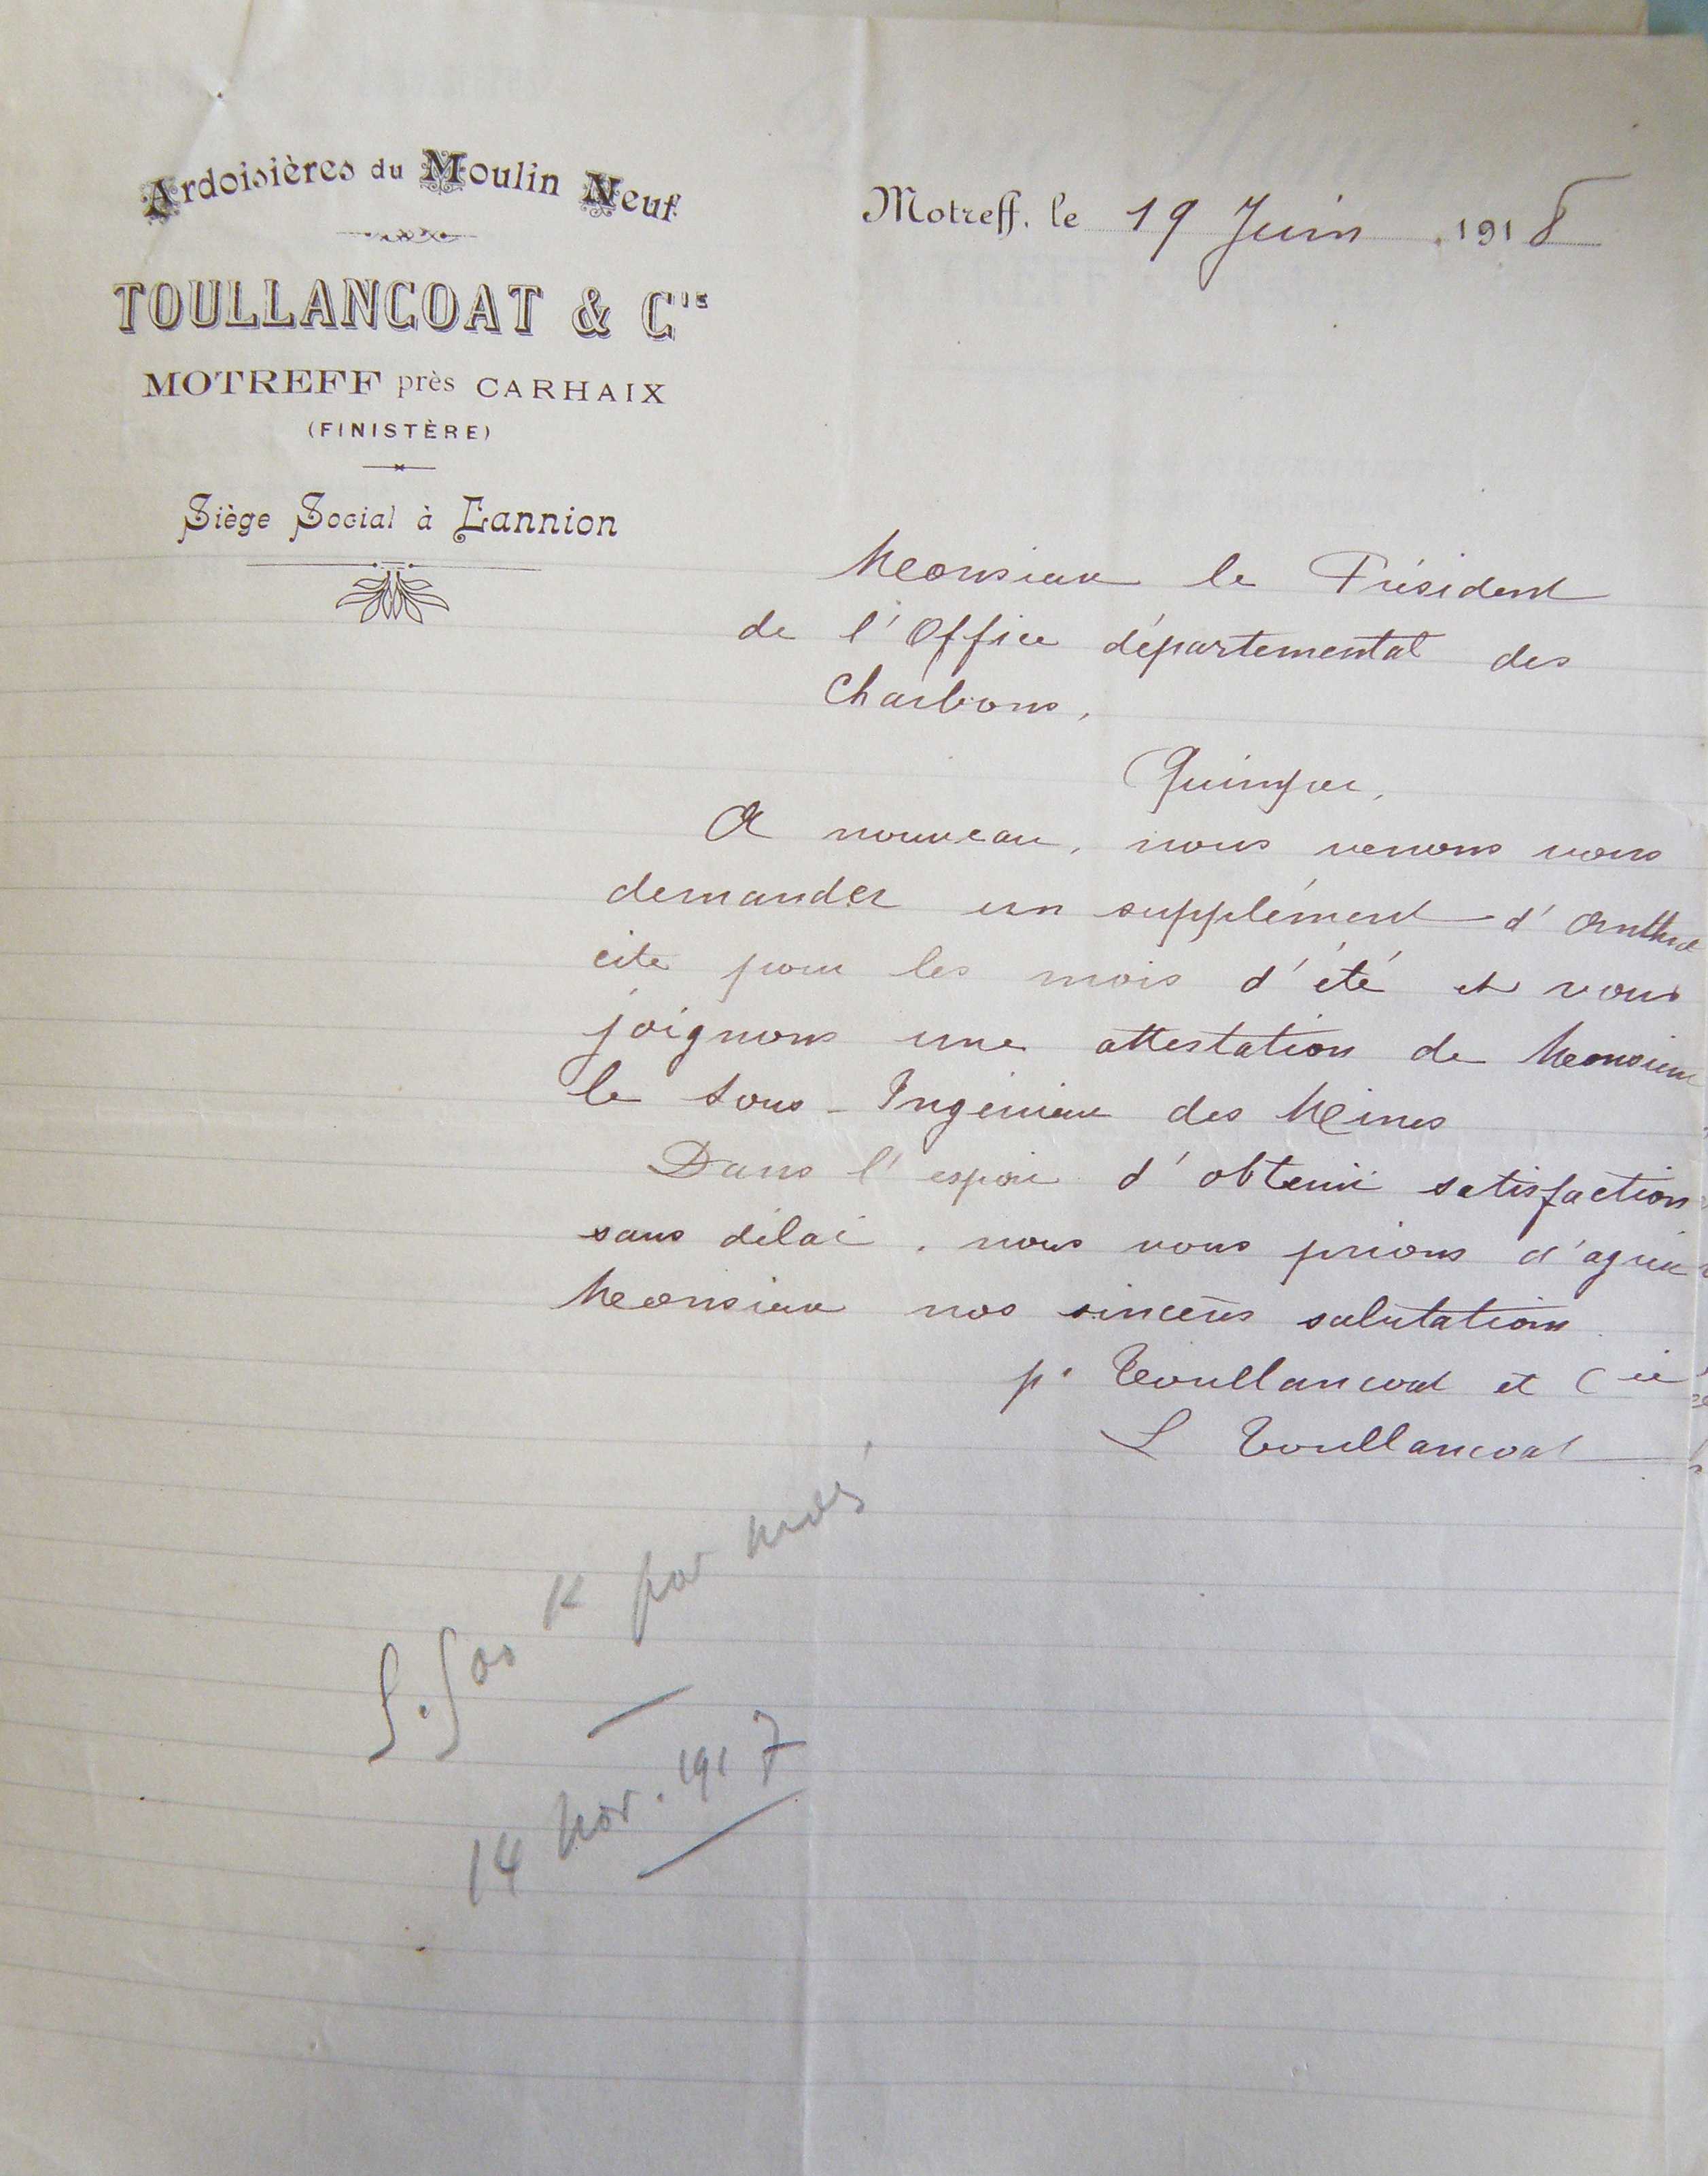 Ardoisières du Moulin Neuf
TOULLANCOAT & Cie
MOTREFF près CARHAIX
(FINISTÈRE)
Siège Social à Lannion
Motreff, le 19 Juin 1918
Monsieur le Président
de l'Office départemental des
Charbons,
Quimper,
A nouveau, nous venons vous
demander un supplément d'Anthra
cite pour les mois d'été et vous
joignons une attestation de Monsieur
le Sous-Ingénieur des Mines
Dans l'espoir d'obtenir satisfaction
sans délai, nous vous prions d'agréer
Monsieur nos sincères salutations
pr Toullancoat et Cie
L Toullancoat
5.500 K par mois
14 Nov. 1917